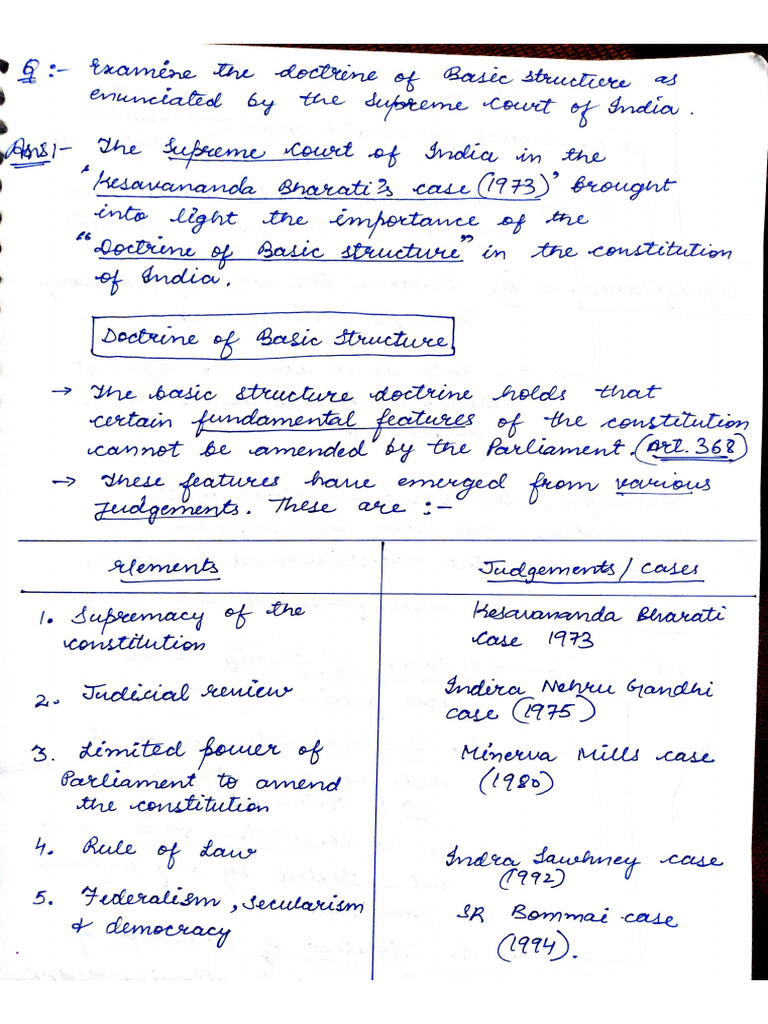 Q :- Examine the doctrine of Basic structure as
enunciated by the Supreme Court of India.
Ans:- The Supreme Court of India in the
"Kesavananda Bharati's case (1973)" brought
into light the importance of the
"Doctrine of Basic structure" in the constitution
of India.
Doctrine of Basic Structure
→ The basic structure doctrine holds that
certain fundamental features of the constitution
cannot be amended by the Parliament. (Art. 368)
→ These features have emerged from various
Judgements. These are :-
Elements Judgements / cases
1. Supremacy of the Kesavananda Bharati
constitution case 1973
2. Judicial review Indira Nehru Gandhi
case (1975)
3. Limited power of Minerva Mills case
Parliament to amend (1980)
the constitution
4. Rule of Law Indra Sawhney case
(1992)
5. Federalism, secularism SR Bommai case
& democracy (1994).